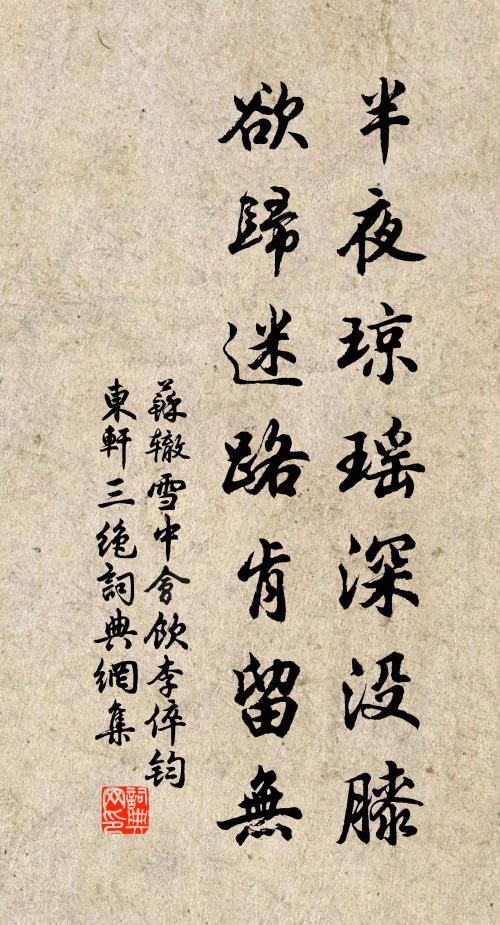 半夜琼瑶深没膝
欲歸迷路肯留無
蘇辙雪中會飲李倅钧
東軒三绝詞典網集
詞典
网印